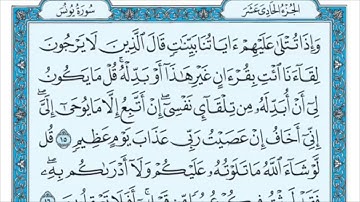 الجزء الحادي عشر
سورة يونس
وَإِذَا تُتْلَىٰ عَلَيْهِمْ ءَايَاتُنَا بَيِّنَٰتٍ قَالَ الَّذِينَ لَا يَرْجُونَ
لِقَاءَنَا ائْتِ بِقُرْءَانٍ غَيْرِ هَٰذَا أَوْ بَدِّلْهُ ۚ قُلْ مَا يَكُونُ
لِي أَنْ أُبَدِّلَهُ مِن تِلْقَايِٕ نَفْسِي ۖ إِنْ أَتَّبِعُ إِلَّا مَا يُوحَىٰ إِلَيَّ ۖ
إِنِّي أَخَافُ إِنْ عَصَيْتُ رَبِّي عَذَابَ يَوْمٍ عَظِيمٍ ١٥ قُل
لَّوْ شَاءَ اللَّهُ مَا تَلَوْتُهُ عَلَيْكُمْ وَلَا أَدْرَىٰكُم بِهِ ۖ